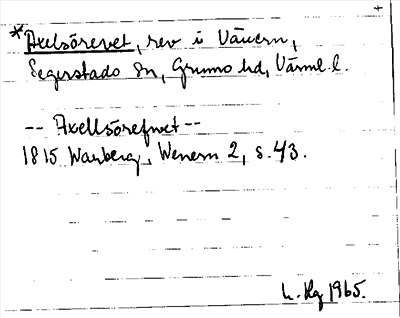 +
*Axelsörevet, rev i Vänern,
Segerstads sn, Grums hd, Värml. l.
-- Axellsörefwet --
1815 Warberg, Wenern 2, s. 43.
1965.